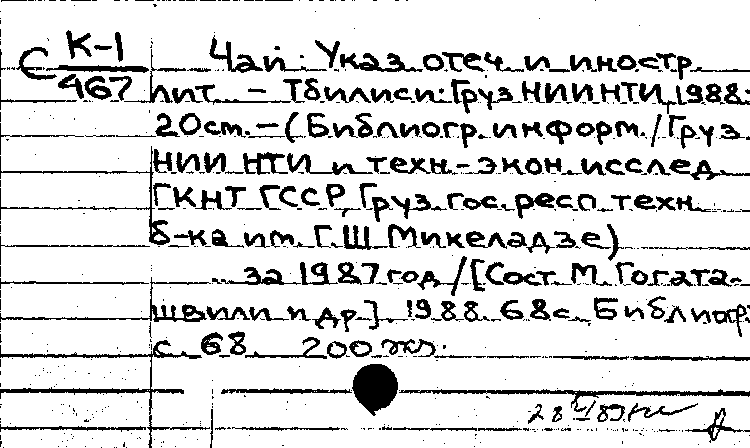 С К-1
467
Чай: Указ. отеч. и иностр.
лит. – Тбилиси: ГрузНИИНТИ, 1988.
20см. – (Библиогр. информ. / Груз.
НИИ НТИ и техн.-экон. исслед.
ГКНТ ГССР, Груз. гос. респ. техн.
б-ка им. Г.Ш. Микеладзе)
... за 1987 год / [Сост. М. Гогата-
швили и др.]. 1988. 68с. Библиогр.:
с. 68. 200 экз.